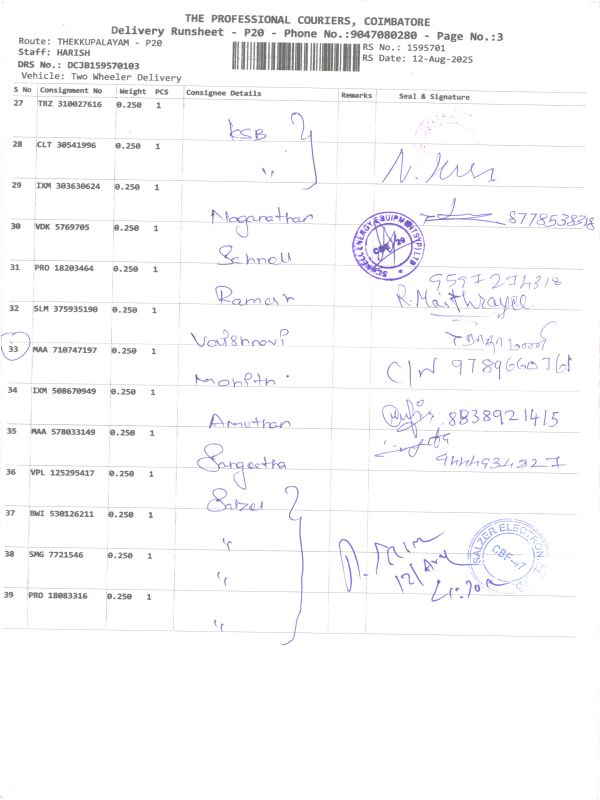 THE PROFESSIONAL COURIERS, COIMBATORE
Delivery Runsheet - P20 - Phone No.:9047080280 - Page No.:3
Route: THEKKUPALAYAM - P20
RS No.: 1595701
Staff: HARISH
RS Date: 12-Aug-2025
DRS No.: DCJB159570103
Vehicle: Two Wheeler Delivery
S No Consignment No Weight PCS Consignee Details Remarks Seal & Signature
27 TRZ 310027616 0.250 1 KSB
28 CLT 30541996 0.250 1 "
29 IXM 303630624 0.250 1 Naganathan 8778538318
30 VDK 5769705 0.250 1 Schnell SCHNELL ENERGY EQUIPMENTS (P) LTD CBE-20
31 PRO 18203464 0.250 1 Ramesh 9597274318
R. Maithrayee
32 SLM 375935190 0.250 1 Vaishnavi
33 MAA 710747197 0.250 1 Mohith C/N 9789660761
34 IXM 508670949 0.250 1 Amuthan 8838921415
35 MAA 578033149 0.250 1 Sangeetha 9444934227
36 VPL 125295417 0.250 1 Salzer
37 BWI 530126211 0.250 1 "
38 SMG 7721546 0.250 1 " 12/Aug SALZER ELECTRONICS CBE-47
39 PRO 18083316 0.250 1 "